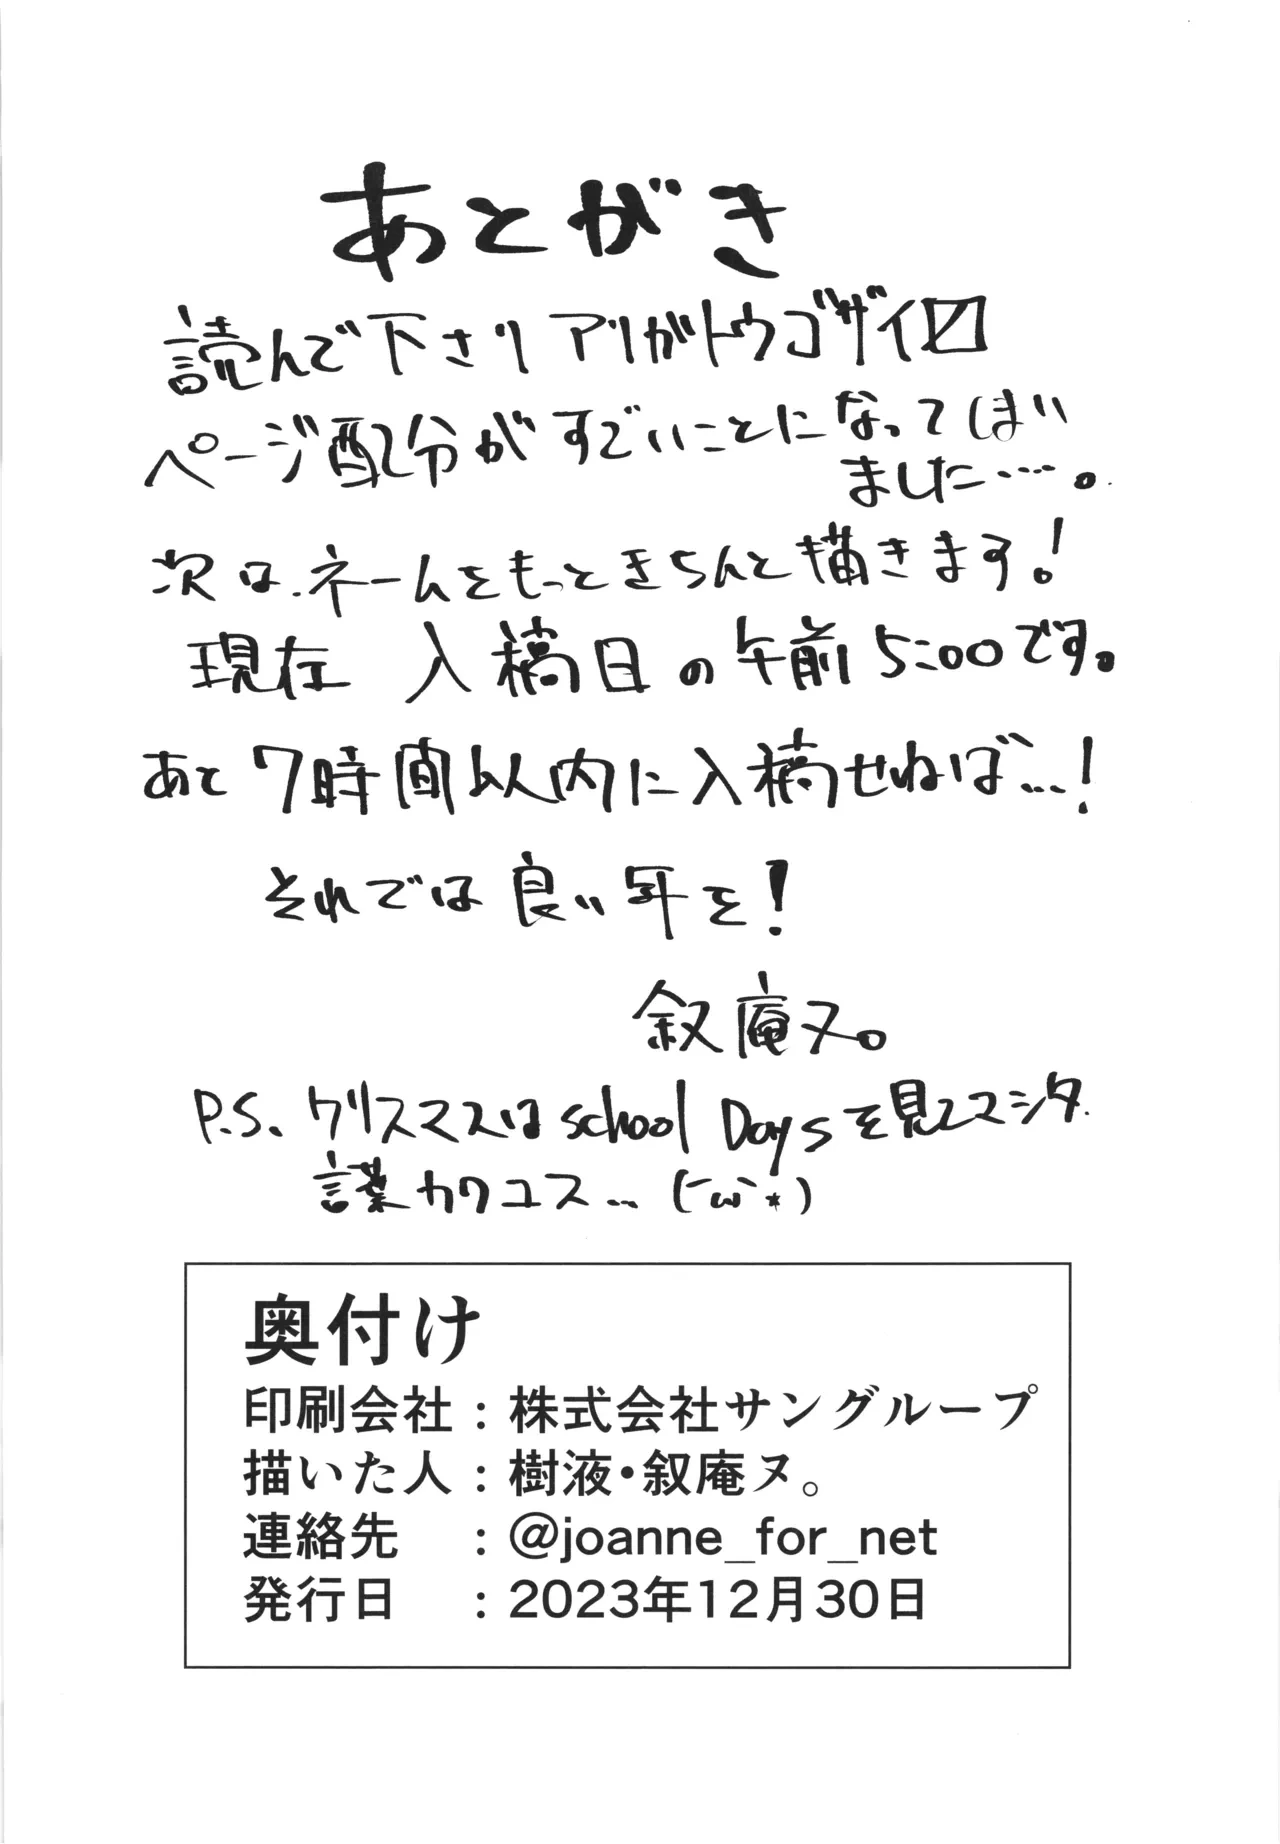 あとがき
読んで下さり アリガトウゴザイ〼
ページ配分がすごいことになってしまい
ました……。
次は、ネームをもっときちんと描きます!
現在 入稿日の午前5:00です。
あと7時間以内に入稿せねば…!
それでは良い年を!
叙庵ヌ。
P.S. クリスマスはschool Daysを見てマシタ.
言葉カワユス… (´ω`*)
奥付け
印刷会社：株式会社サングループ
描いた人：樹液・叙庵ヌ。
連絡先　：@joanne_for_net
発行日　：2023年12月30日